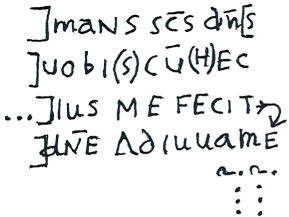 ]maNS sc̄s dn̄[s
]uobi(s)cū(H)EC
...]ius ME FECIT
]dN̄E Adiuuame